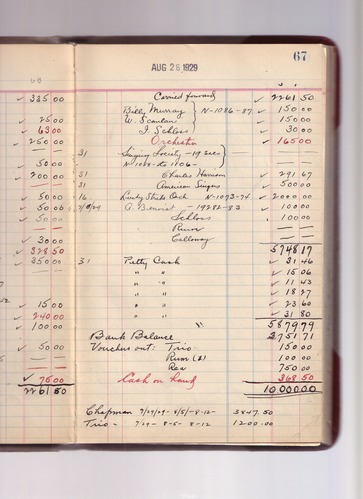 67
AUG 26 1929
✓ 335 00 Carried forward ✓ 2261 50
Billy Murray N-1086-87 ✓ 150 00
✓ 25 00 W. Scanlan ✓ 150 00
✓ 63 00 I. Schloss ✓ 30 00
✓ 250 00 Orchestra ✓ 165 00
31 Singing Society - 19 secs
✓ 50 00 N-1099-to 1106-
✓ 200 00 31 Charles Harrison ✓ 291 67
31 American Singers ✓ 500 00
✓ 50 00 16 Lucky Strike Orch N-1073-74 ✓ 2000 00
✓ 50 00 A. Bernat - 19282-83 ✓ 10 00
✓ 50 00 Schloss 100 00
Rum
✓ 30 00 Calloway
✓ 328 50 5748 17
✓ 350 00 31 Petty Cash ✓ 31 46
" " ✓ 15 06
" " ✓ 11 43
" " ✓ 18 27
✓ 15 00 " " ✓ 23 60
✓ 240 00 " " ✓ 31 80
✓ 100 00 " 5879 79
Bank Balance 2751 71
✓ 50 00 Voucher out: Trio 150 00
Rum (2) 100 00
Rea 750 00
✓ 75 00 Cash on hand 368 50
2261 50 10,000 00
Chapman 7/29/-9-8/5/-8-12- 3847.50
Trio - 7/29 - 8-5 - 8-12 1200.00